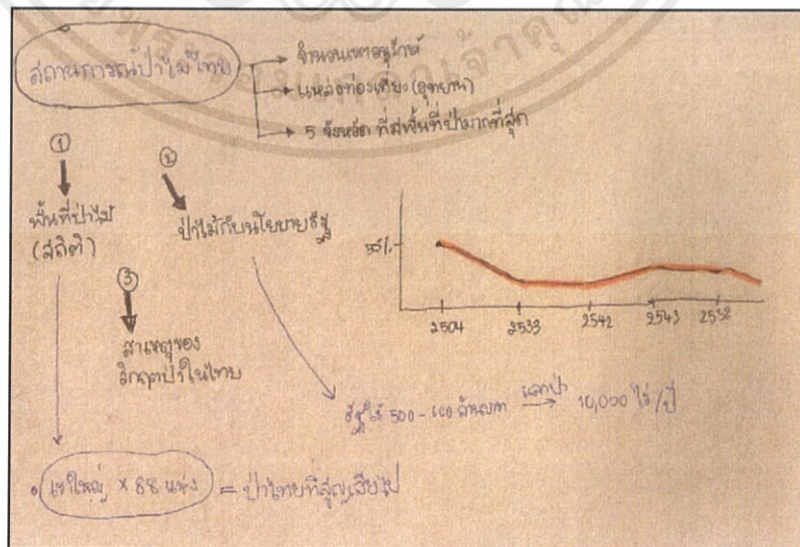 สถานการณ์ป่าไม้ไทย
จำนวนเขตอนุรักษ์
แหล่งท่องเที่ยว (อุทยาน)
5 จังหวัด ที่มีพื้นที่ป่ามากที่สุด
1
พื้นที่ป่าไม้
(สถิติ)
2
ป่าไม้กับนโยบายรัฐ
3
สาเหตุของ
วิกฤตป่าในไทย
2504 2533 2542 2543 2552
รัฐใช้ 500 - 600 ล้านบาท 10,000 ไร่/ปี
เขาใหญ่ × 88 แห่ง = ป่าไทยที่สูญเสียไป